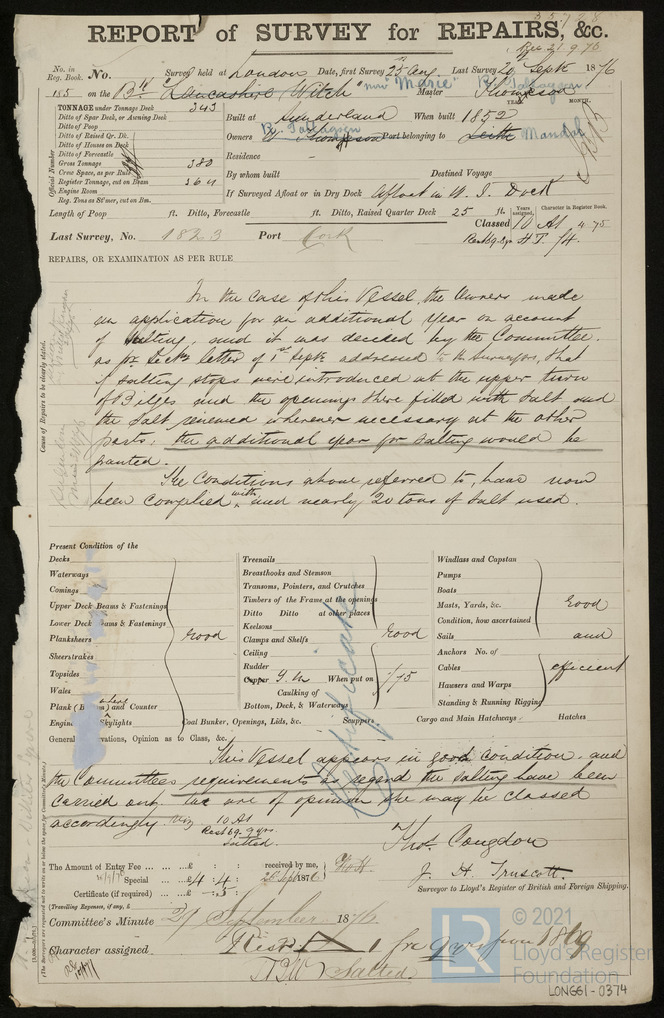 REPORT of SURVEY for REPAIRS, &c.
Rec 21.9.76
No. in Reg. Book. No. Survey held at London Date, first Survey 25th Aug Last Survey 20th Septr 1876
185 on the Bk "Lancashire Witch" now "Marie" Master Thompson B. Tallaggen
TONNAGE under Tonnage Deck 343
Ditto of Spar Deck, or Awning Deck
Ditto of Poop
Ditto of Raised Qr. Dk.
Ditto of Houses on Deck
Ditto of Forecastle
Gross Tonnage 380
Crew Space, as per Rule
Register Tonnage, cut on Beam 364
Engine Room
Reg. Tons as St'mer, cut on Bm.
Official Number
Built at Sunderland When built 1852
YEAR. MONTH.
Owners B. Tallaggen Thompson Port belonging to Leith Mandal
Residence
By whom built Destined Voyage
If Surveyed Afloat or in Dry Dock Afloat in W. I. Dock
Length of Poop ft. Ditto, Forecastle ft. Ditto, Raised Quarter Deck 25 ft.
Years assigned. Character in Register Book.
Classed 10 A1 4-75
Last Survey, No. 1823 Port Cork
REPAIRS, OR EXAMINATION AS PER RULE
In the case of this Vessel, the Owners made
an application for an additional year on account
of Salting, and it was decided by the Committee,
as pr Secty's letter of 1st Septr addressed to the Surveyors, that
if salting stops were introduced at the upper turn
of Bilges and the openings there filled with Salt and
the Salt renewed wherever necessary at the other
parts; the additional year for salting would be
granted.
The Conditions above referred to, have now
been complied with, and nearly 20 tons of Salt used.
Cause of Repairs to be clearly stated.
Present Condition of the
Decks
Waterways
Comings
Upper Deck Beams & Fastenings
Lower Deck Beams & Fastenings
Planksheers
Sheerstrakes
Topsides
Wales
Plank (Bottom) and Counter
Engine Skylights
Good
Treenails
Breasthooks and Stemson
Transoms, Pointers, and Crutches
Timbers of the Frame at the openings
Ditto Ditto at other places
Keelsons
Clamps and Shelfs
Ceiling
Rudder
Copper Y. M. When put on 1/75
Caulking of
Bottom, Deck, & Waterways
Good
Windlass and Capstan
Pumps
Boats
Masts, Yards, &c.
Condition, how ascertained
Sails
Anchors No. of
Cables
Hausers and Warps
Standing & Running Rigging
Good
and
efficient
Coal Bunker, Openings, Lids, &c. Scuppers Cargo and Main Hatchways Hatches
Certificate
General Observations, Opinion as to Class, &c.
This Vessel appears in good condition, and
the Committees requirements as regard the salting have been
carried out, we are of opinion she may be classed
accordingly viz 10 A1
Rest 69. 9 yrs.
Salted.
Thos. Congdon
J. H. Truscott.
Surveyor to Lloyd's Register of British and Foreign Shipping.
The Amount of Entry Fee ... ... £ : : received by me,
Special ... £4 : 4 : 20 Sep 1876
Certificate (if required) ... £ - : 5 :
(Travelling Expenses, if any, £
Committee's Minute 29 September 1876
Character assigned Rest A 1 for 9 yrs from 1869
Salted
© 2021
LR
Lloyd's Register
Foundation
LONGG1-0374